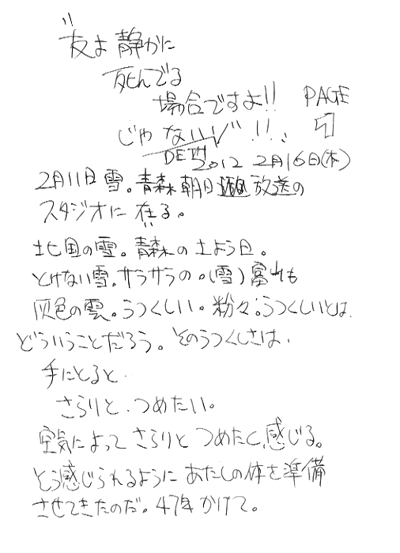 "友よ静かに
死んでる
場合ですよ!! PAGE
じゃない!!、 1
DEATH
2012 2月16日(木)
2月11日 雪。青森朝日放送の
スタジオに 在る。
北国の雪。青森の土よう日。
とけない雪。サラサラの。(雪)
灰色の雲。うつくしい。粉々。うつくしいとは、
どういうことだろう。そのうつくしさは、
手にとると、
さらりと、つめたい。
空気によって さらりと つめたく、感じる。
とう感じられるように あたしの体を準備
させてきたのだ。47年 かけて。